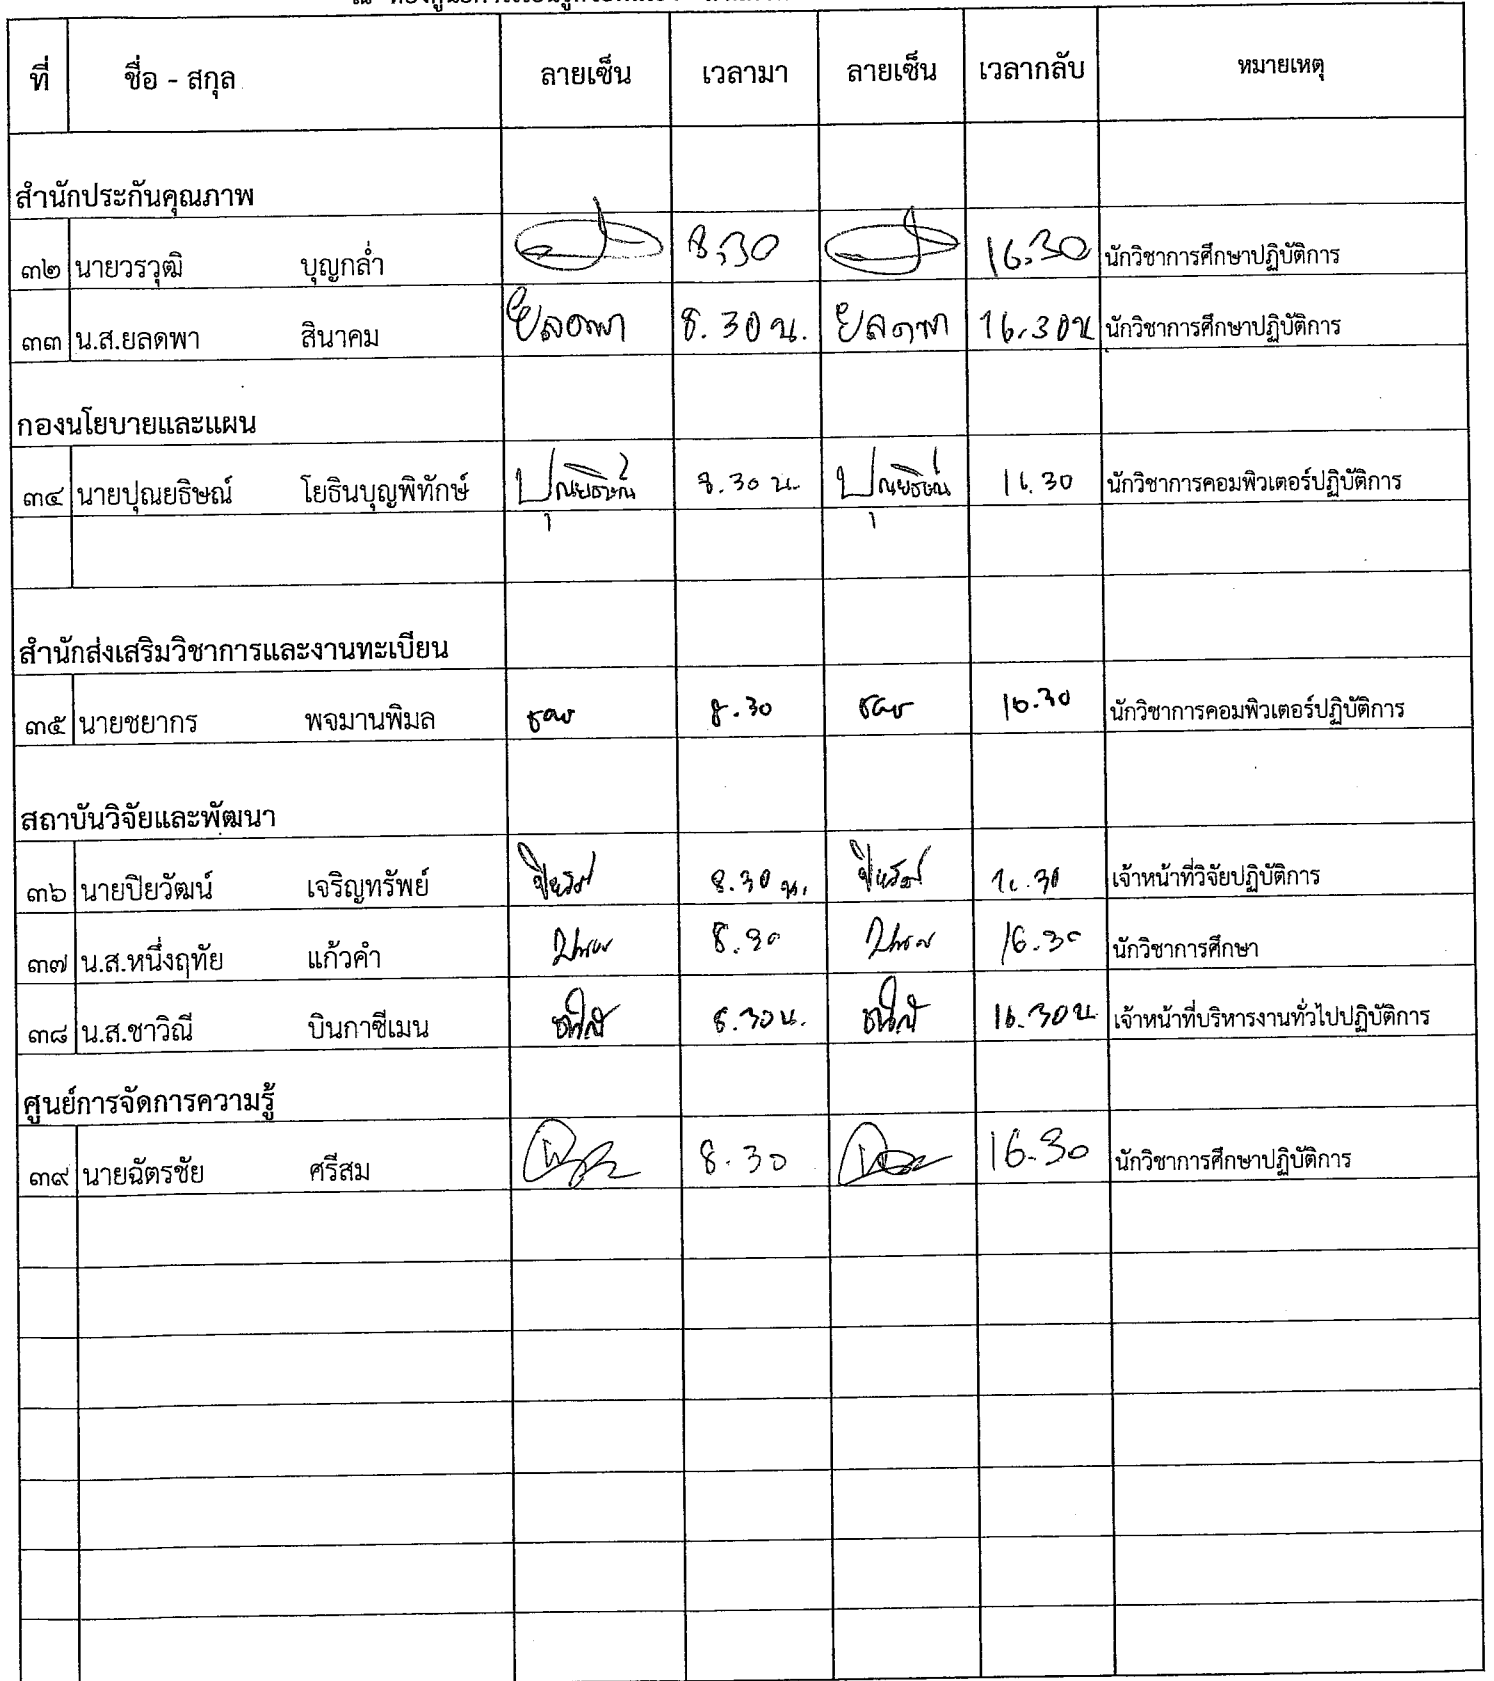 ที่ ชื่อ - สกุล ลายเซ็น เวลามา ลายเซ็น เวลากลับ หมายเหตุ
สำนักประกันคุณภาพ
๓๒ นายวรวุฒิ บุญกล่ำ 8.30 16.30 นักวิชาการศึกษาปฏิบัติการ
๓๓ น.ส.ยลดพา สีนาคม ยลดพา 8.30 น. ยลดพา 16.30 น นักวิชาการศึกษาปฏิบัติการ
กองนโยบายและแผน
๓๔ นายปุณยธิษณ์ โยธินบุญพิทักษ์ ปุณยธิษณ์ 8.30 น. ปุณยธิษณ์ 16.30 นักวิชาการคอมพิวเตอร์ปฏิบัติการ
สำนักส่งเสริมวิชาการและงานทะเบียน
๓๕ นายชยากร พจมานพิมล 8.30 16.30 นักวิชาการคอมพิวเตอร์ปฏิบัติการ
สถาบันวิจัยและพัฒนา
๓๖ นายปิยวัฒน์ เจริญทรัพย์ 8.30 น. 16.30 เจ้าหน้าที่วิจัยปฏิบัติการ
๓๗ น.ส.หนึ่งฤทัย แก้วคำ 8.30 16.30 นักวิชาการศึกษา
๓๘ น.ส.ชาวิณี บินกาซีเมน 8.30 น. 16.30 น เจ้าหน้าที่บริหารงานทั่วไปปฏิบัติการ
ศูนย์การจัดการความรู้
๓๙ นายฉัตรชัย ศรีสม 8.30 16.30 นักวิชาการศึกษาปฏิบัติการ